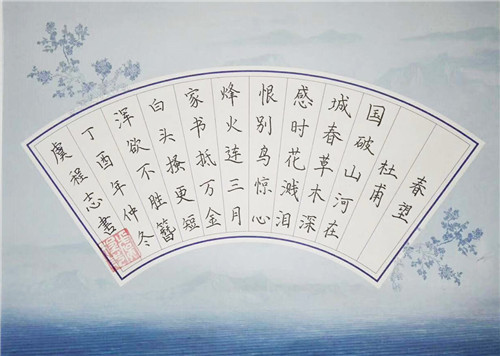 春望
杜甫
国破山河在
城春草木深
感时花溅泪
恨别鸟惊心
烽火连三月
家书抵万金
白头搔更短
浑欲不胜簪
丁酉年仲冬
虞程志書